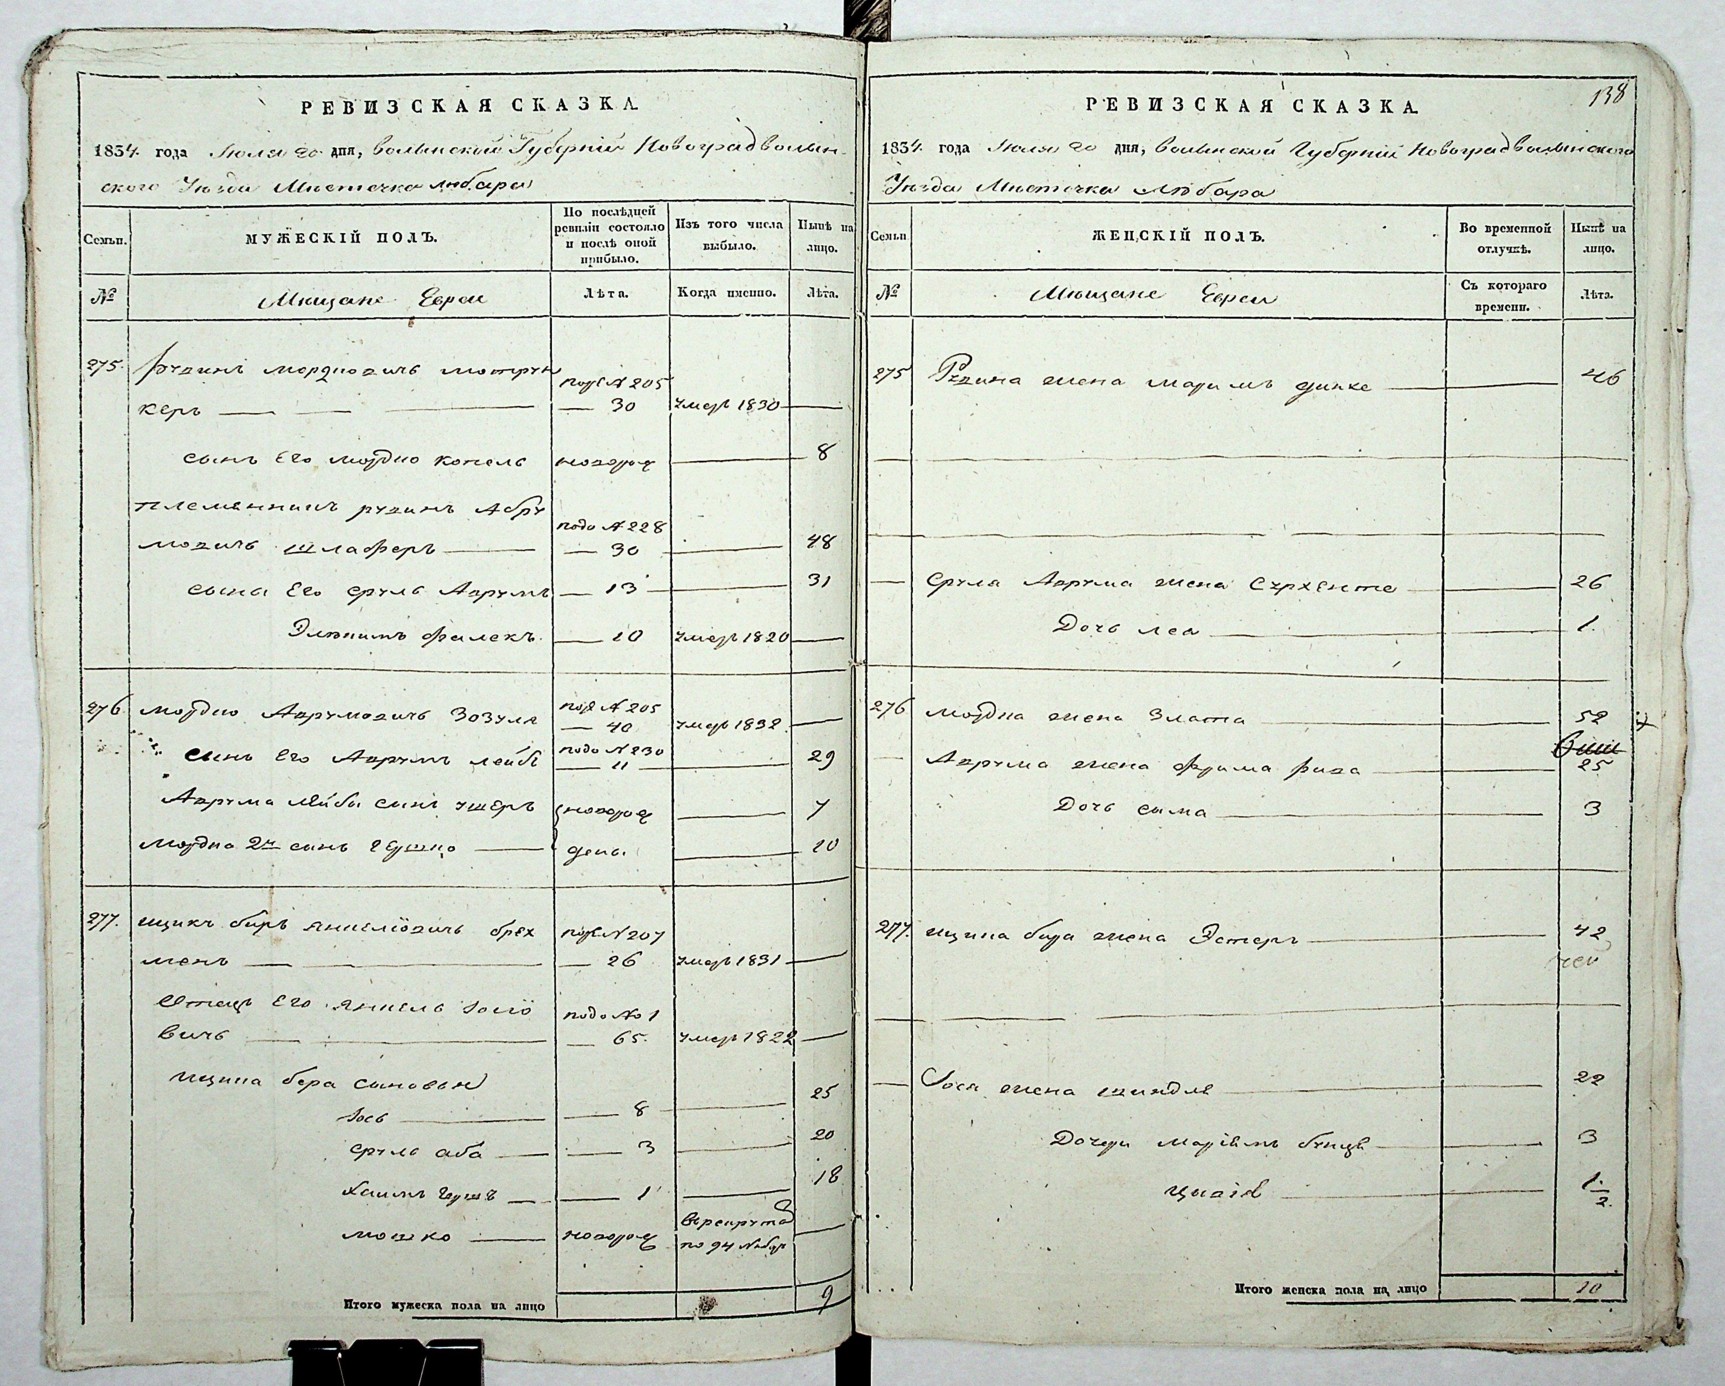 РЕВИЗСКАЯ СКАЗКА.
1834. года Июля 20 дня, Волынской Губернiи Новоградволын-
ского Уѣзда Мѣстечка Любара
Семьи.
МУЖЕСКIЙ ПОЛЪ.
По послѣдней ревизiи состояло и послѣ оной прибыло.
Изъ того числа выбыло.
Нынѣ на лицо.
№
Мѣщане Евреи
Лѣта.
Когда именно.
Лѣта.
275. Рувинъ Мордковичъ
керъ — 30 умеръ 1830 —
сынъ его Мордко Копель новорож — 8
племянникъ Рувинъ Абру
подъ № 228
мовичъ Шлаферъ — 30 — 48
сына его Сруль Аврумъ — 13 — 31
Фалекъ — 10 умеръ 1820 —
276 Мордко Аврумовичъ Зозуля
подъ № 205
— 40 умеръ 1832. —
сынъ его Аврумъ Лейбъ
подъ № 230
— 11 — 29
Аврума Лейбы сынъ Ушеръ новорож — 7
Мордка 2й сынъ Гершко — дены. — 10
277. Ицикъ Беръ Янкелiовичъ Брех
подъ № 207
манъ — 26 умеръ 1831 —
Отецъ его Янкель Iосiо
подъ № 1
вичъ — 65. умеръ 1822 —
Ицика Бера сыновья
Iось — 8 — 25
Сруль Аба — 3 — 20
Хаимъ Гершъ — 1 — 18
Мошко — новорож
Итого мужеска пола на лицо 9
138
РЕВИЗСКАЯ СКАЗКА.
1834. года Июля 20 дня, Волынской Губернiи Новоградволынского
Уѣзда Мѣстечка Любара
Семьи.
ЖЕНСКIЙ ПОЛЪ.
Во временной отлучкѣ.
Нынѣ на лицо.
№
Мѣщане Евреи
Съ котораго времени.
Лѣта.
275 Рувина жена Маримъ — 46
— Сруля Аврума жена — 26
Дочь Лея — 1.
276 Мордка жена Злата — 52
— Аврума жена Фрима Рива — 25
Дочь Сима — 3
277. Ицика Бера жена Эстеръ — 42
— Iося жена Шиндля — 22
Дочери Марiемъ — 3
Цивiя — 1/2.
Итого женска пола на лицо 10